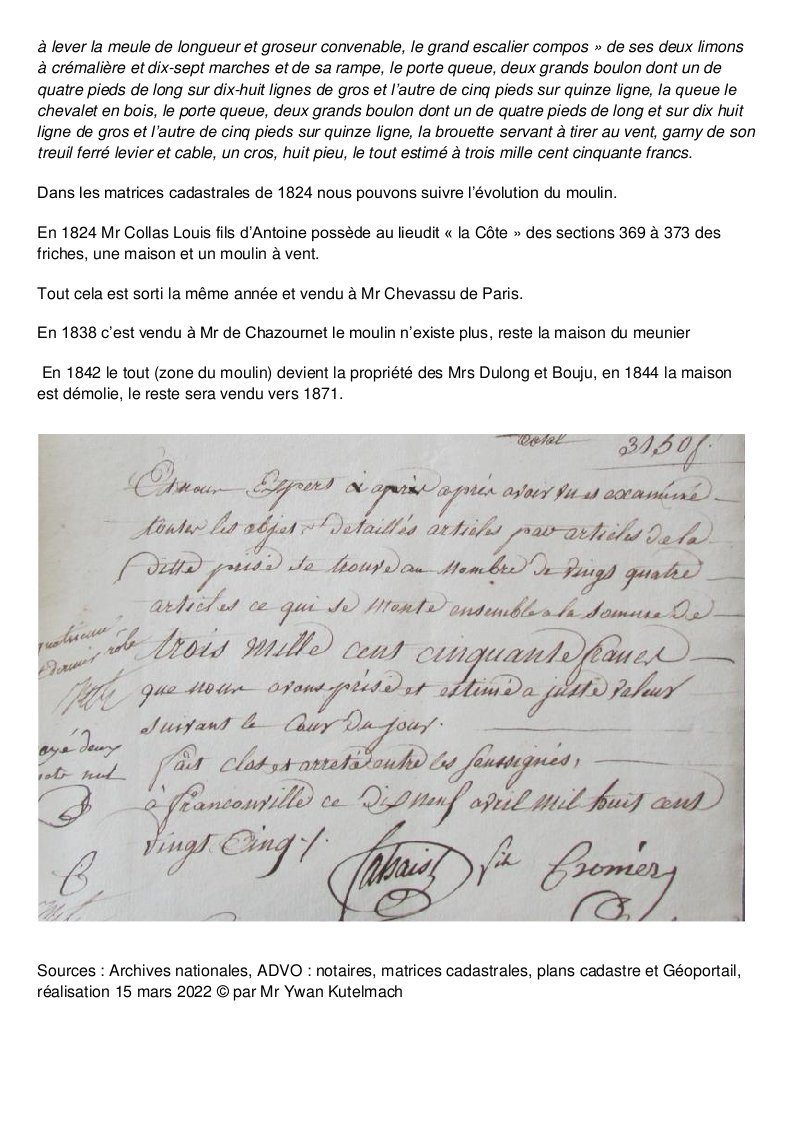 à lever la meule de longueur et groseur convenable, le grand escalier compos » de ses deux limons
à crémalière et dix-sept marches et de sa rampe, le porte queue, deux grands boulon dont un de
quatre pieds de long sur dix-huit lignes de gros et l’autre de cinq pieds sur quinze ligne, la queue le
chevalet en bois, le porte queue, deux grands boulon dont un de quatre pieds de long et sur dix huit
ligne de gros et l’autre de cinq pieds sur quinze ligne, la brouette servant à tirer au vent, garny de son
treuil ferré levier et cable, un cros, huit pieu, le tout estimé à trois mille cent cinquante francs.
Dans les matrices cadastrales de 1824 nous pouvons suivre l’évolution du moulin.
En 1824 Mr Collas Louis fils d’Antoine possède au lieudit « la Côte » des sections 369 à 373 des
friches, une maison et un moulin à vent.
Tout cela est sorti la même année et vendu à Mr Chevassu de Paris.
En 1838 c’est vendu à Mr de Chazournet le moulin n’existe plus, reste la maison du meunier
En 1842 le tout (zone du moulin) devient la propriété des Mrs Dulong et Bouju, en 1844 la maison
est démolie, le reste sera vendu vers 1871.
Total 3150f.
Experts après après avoir vu et examiné
toutes les objet detaillés articles par articles de la
ditte prisé se trouve au nombre de vingt quatre
articles ce qui se monte ensemble a la somme de
trois mille cent cinquante francs
que nous avons prisé et estimé a juste valeur
suivant le Cour du jour.
fait clos et arreté entre les soussignés,
à franconville ce Dix neuf avril mil huit cent
vingt Cinq
fils Cromér
Sources : Archives nationales, ADVO : notaires, matrices cadastrales, plans cadastre et Géoportail,
réalisation 15 mars 2022 © par Mr Ywan Kutelmach